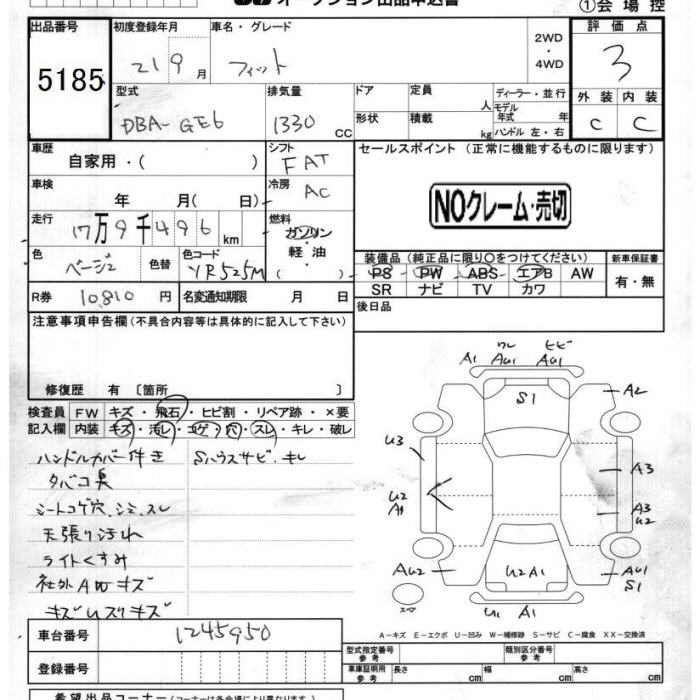 オークション出品申込書
①会場控
出品番号 5185
初度登録年月 21 9月
車名・グレード フィット
2WD・4WD
評価点 3
型式 DBA-GE6
排気量 1330 CC
ドア
形状
定員 人
積載 kg
ディーラー・並行
モデル年式 年
ハンドル 左・右
外装 C
内装 C
車歴 自家用・( )
シフト FAT
セールスポイント(正常に機能するものに限ります)
車検 年 月( 日)
冷房 AC
NOクレーム・売切
走行 17万9千496km
燃料 ガソリン・軽油・( )
色 ベージュ
色替
色コード YR525M
装備品(純正品に限り○をつけてください)
新車保証書 有・無
PS PW ABS エアB AW
SR ナビ TV カワ
R券 10,810 円
名変通知期限 月 日
後日品
注意事項申告欄(不具合内容等は具体的に記入して下さい)
修復歴 有〔箇所 〕
検査員記入欄
FW キズ・飛石・ヒビ割・リペア跡・×要
内装 キズ・汚レ・コゲ・穴・スレ・キレ・破レ
ハンドルカバー付き
タバコ臭
シートコゲ穴、シミ、スレ
天張り汚れ
ライトくすみ
社外AWキズ
Sハウスサビ・キレ
ワレ ヒビ
A1 AU1 AU1
S1
A2
U3
A3
U2 A1
A3 U2
AU2
U2A1
AU1 S1
スペア
U1 A1
A-キズ E-エクボ U-凹み W-補修跡 S-サビ C-腐食 XX-交換済
車台番号 1245950
登録番号
型式指定番号 参考
類別区分番号 参考
車庫証明用 参考
長さ cm 幅 cm 高さ cm
希望出品コーナー(コーナーは各会場により異なります)